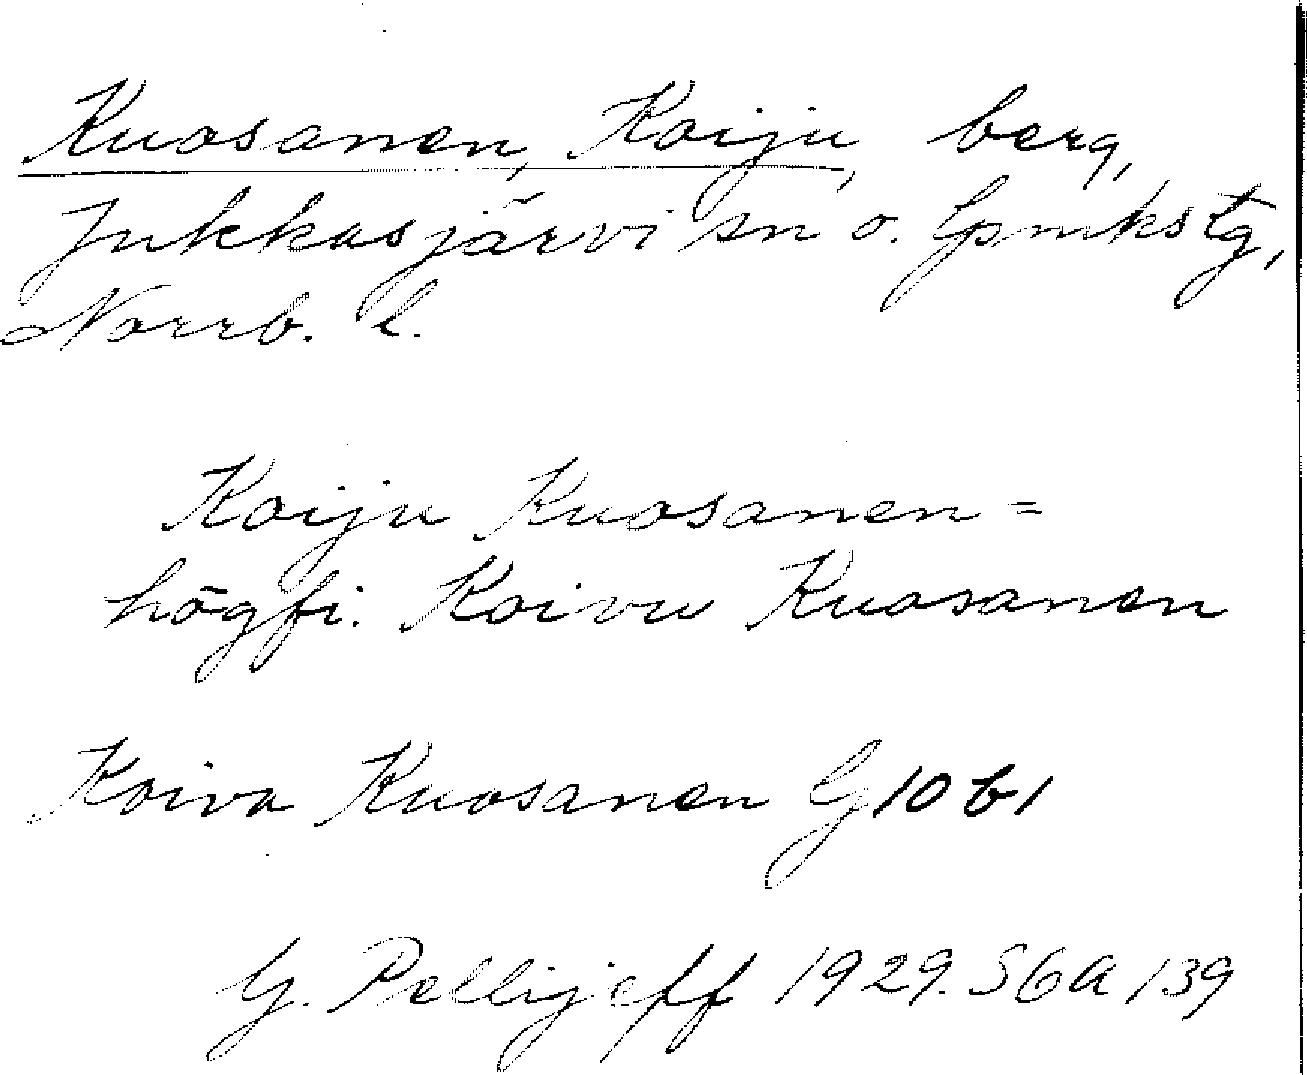 Kuosanen, Koiju, berg,
Jukkasjärvi sn o. lpmkstg,
Norrb. l.
Koiju Kuosanen =
högfi. Koivu Kuosanen
Koiva Kuosanen G10 b1
G. Pellijeff 1929. S6a 139